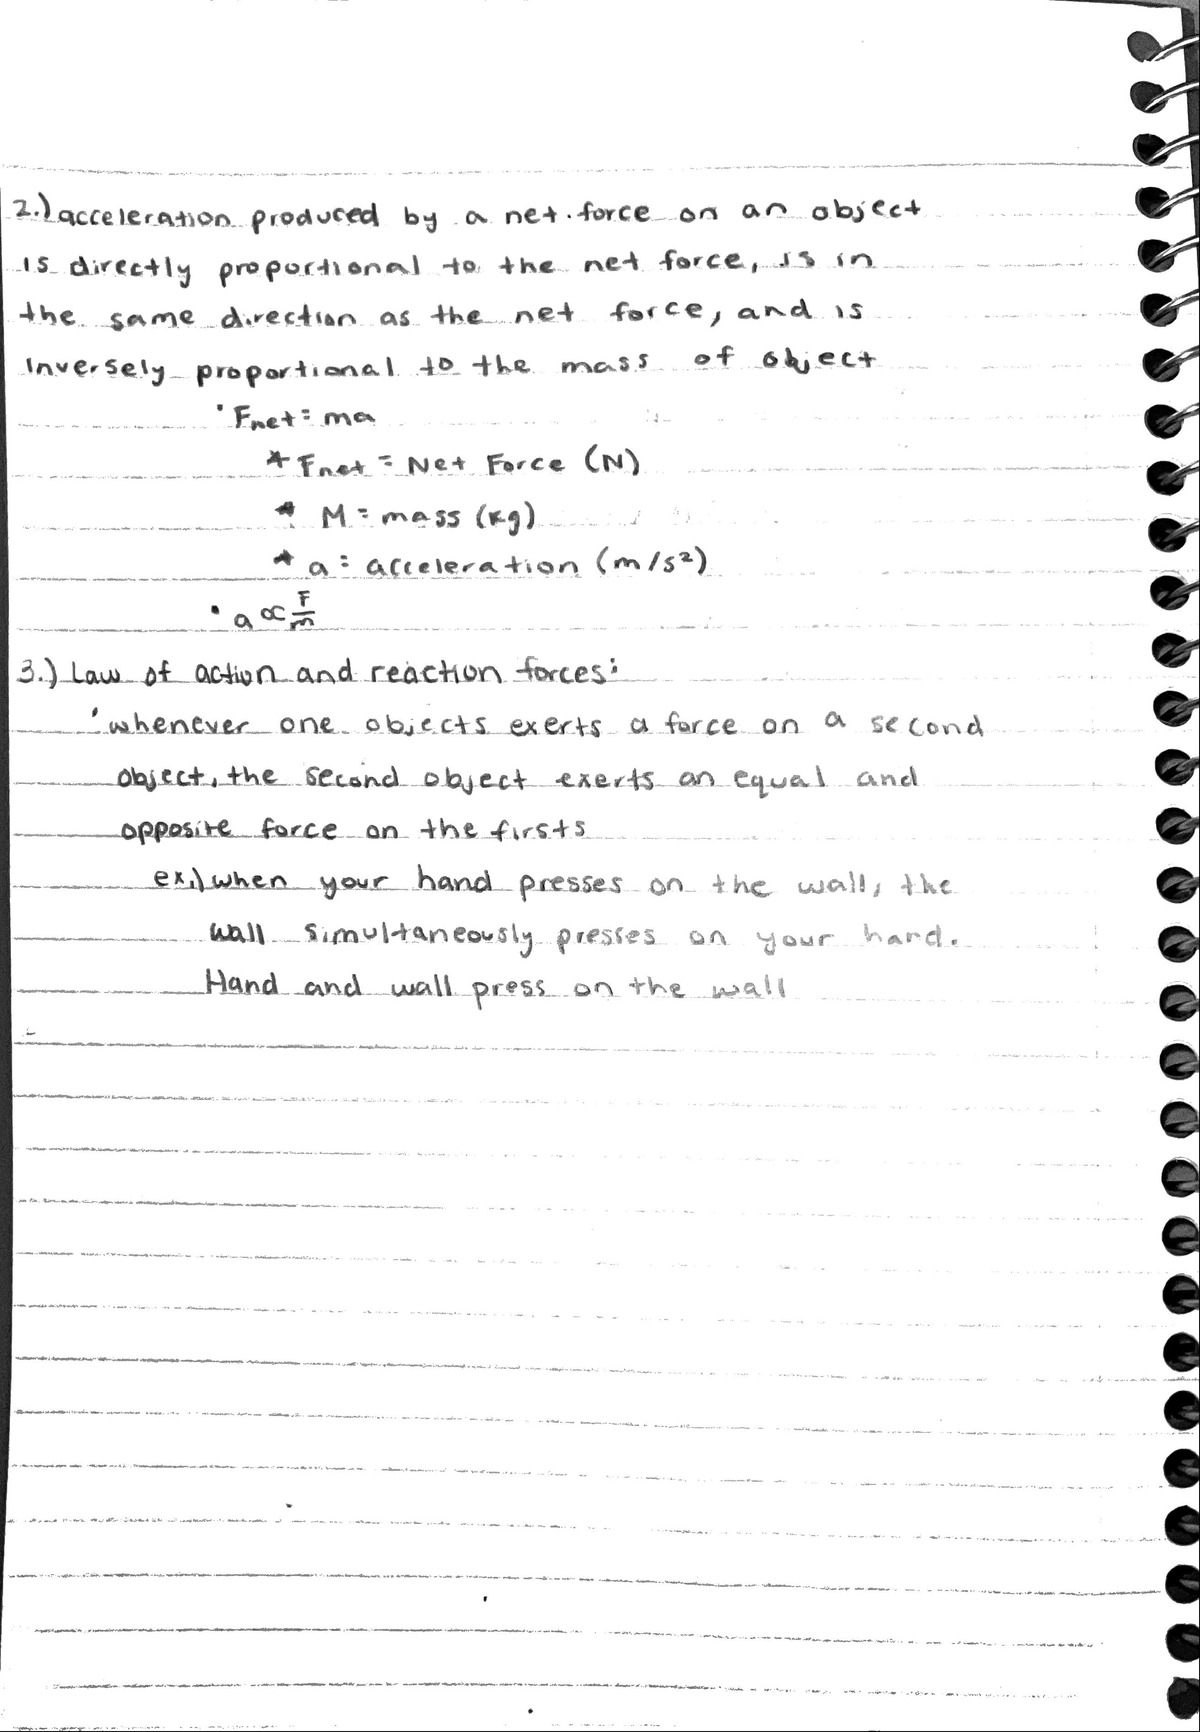 2.) acceleration produced by a net force on an object
is directly proportional to the net force, is in
the same direction as the net force, and is
inversely proportional to the mass of object
• Fnet = ma
* Fnet = Net Force (N)
* M = mass (kg)
* a = acceleration (m/s²)
• a ∝ F/m
3.) Law of action and reaction forces:
• whenever one objects exerts a force on a second
object, the second object exerts an equal and
opposite force on the firsts
ex.) when your hand presses on the wall, the
wall simultaneously presses on your hand.
Hand and wall press on the wall